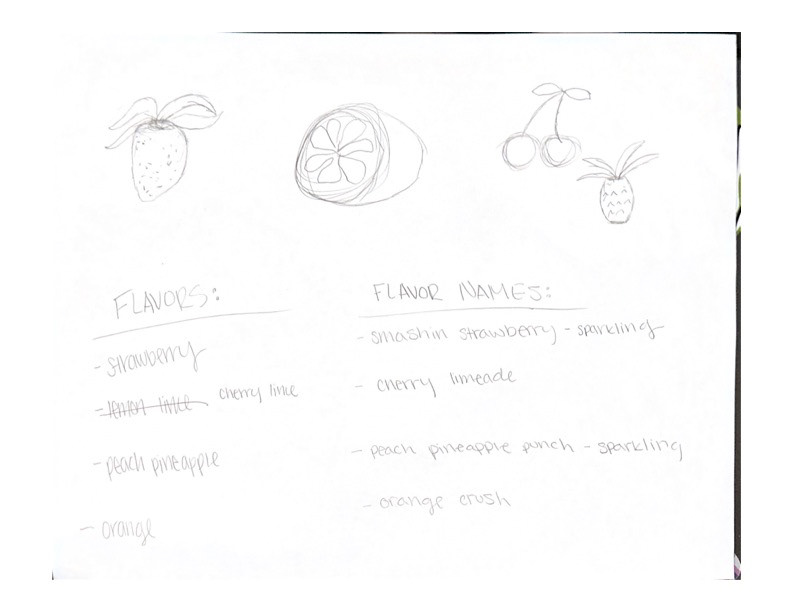 FLAVORS:
- strawberry
- lemon lime cherry lime
- peach pineapple
- orange
FLAVOR NAMES:
- smashin strawberry - sparkling
- cherry limeade
- peach pineapple punch - sparkling
- orange crush